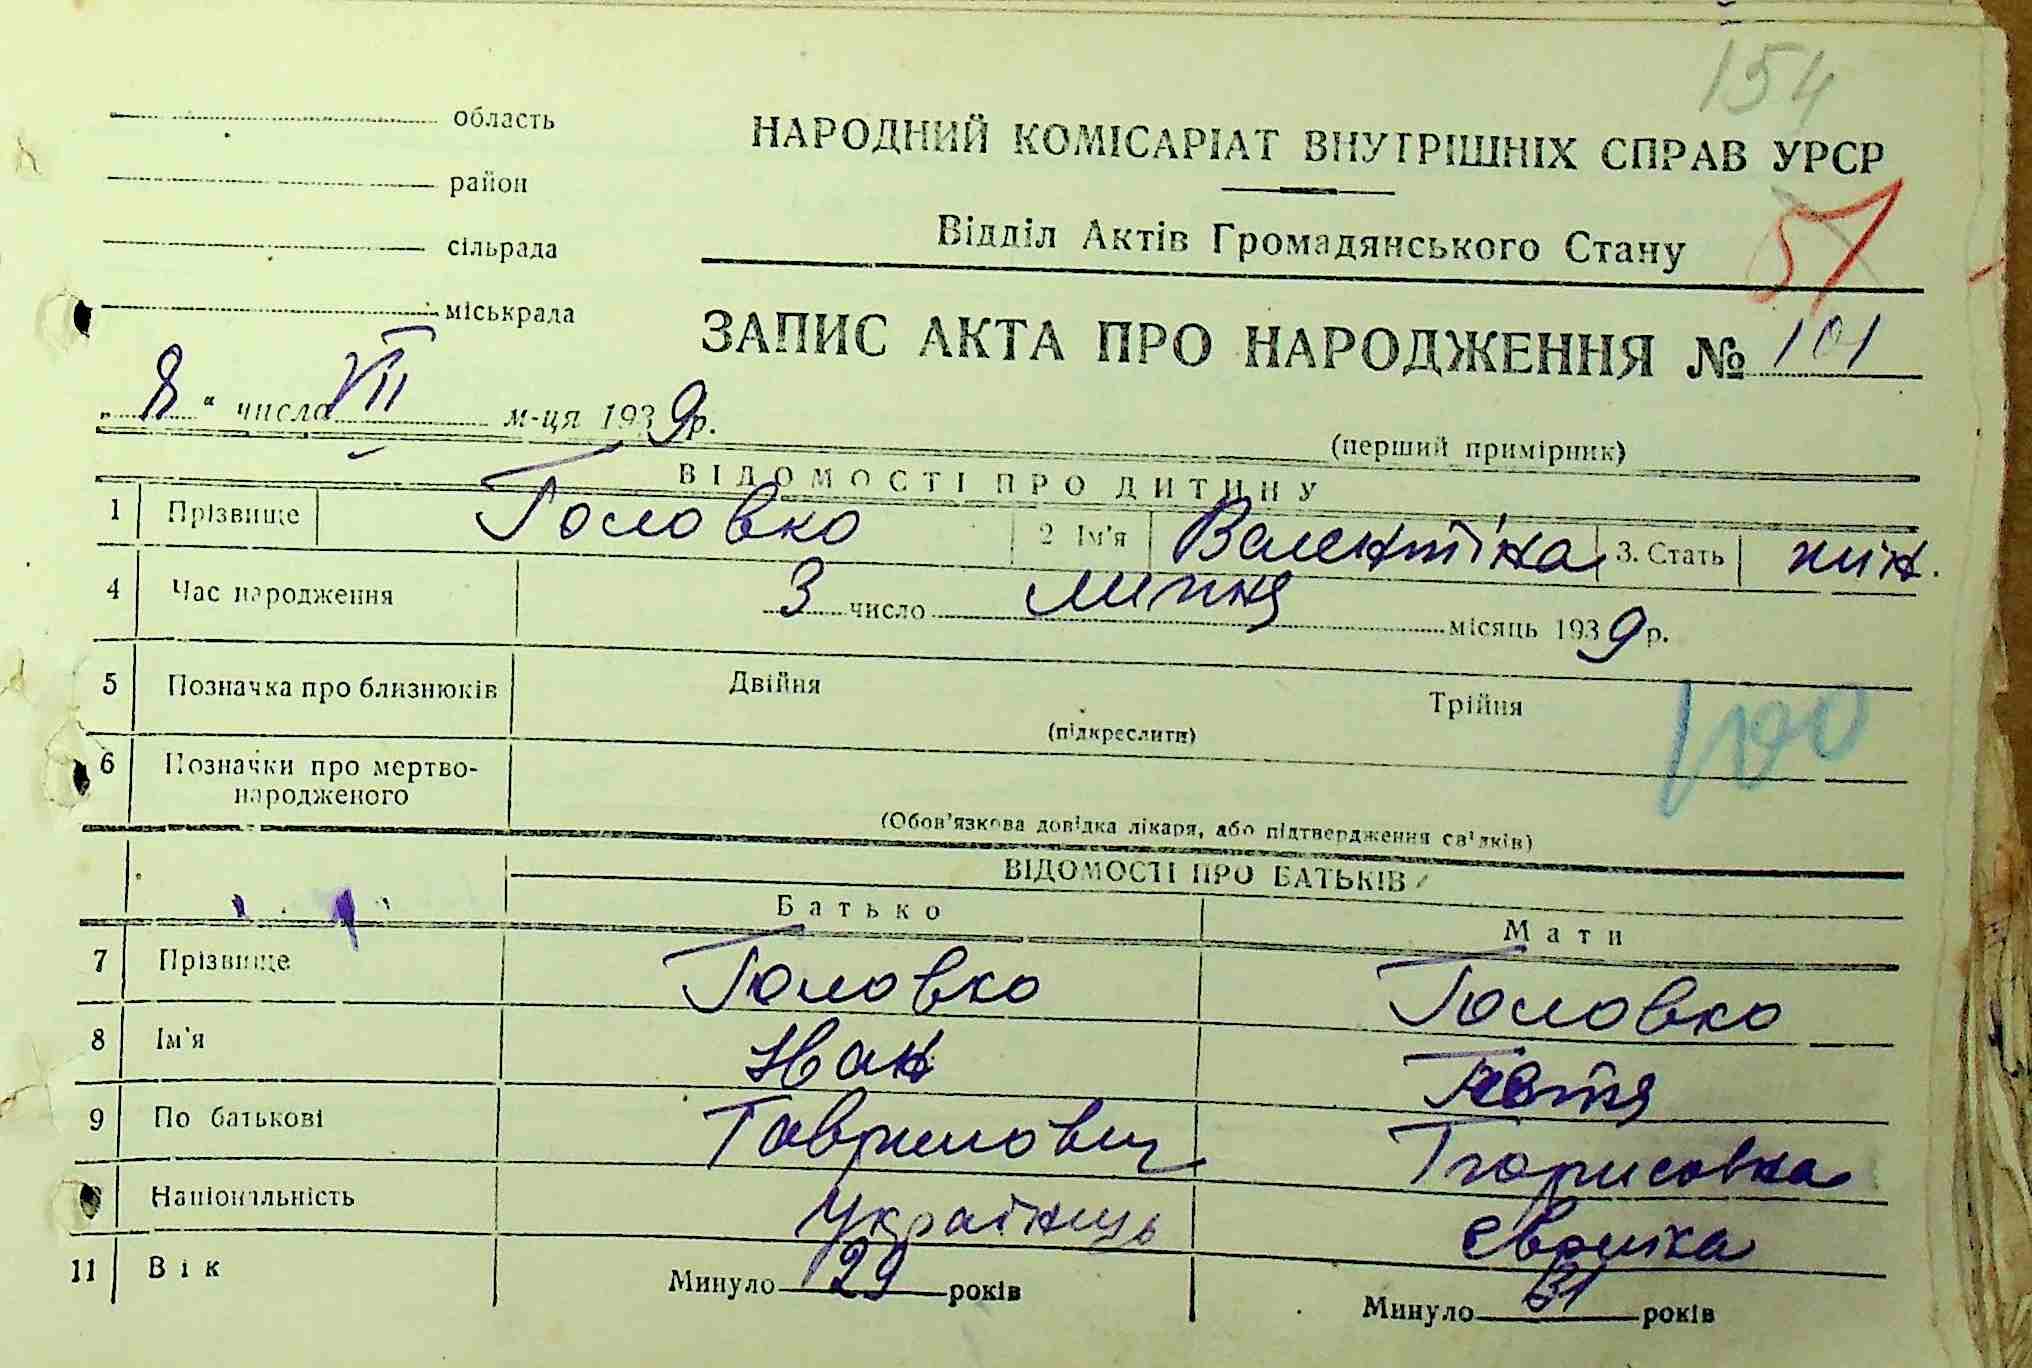 154
область
НАРОДНИЙ КОМІСАРІАТ ВНУТРІШНІХ СПРАВ УРСР
район
51
Відділ Актів Громадянського Стану
сільрада
міськрада
ЗАПИС АКТА ПРО НАРОДЖЕННЯ № 101
„8“ числа VII м-ця 1939р.
(перший примірник)
ВІДОМОСТІ ПРО ДИТИНУ
1 Прізвище Головко 2 Ім'я Валентіна 3. Стать жін.
4 Час народження 3 число липня місяць 1939р.
5 Позначка про близнюків Двійня Трійня
(підкреслити)
6 Позначки про мертво-
народженого
(Обов'язкова довідка лікаря, або підтвердження свідків)
ВІДОМОСТІ ПРО БАТЬКІВ
Батько Мати
7 Прізвище Головко Головко
8 Ім'я Іван
9 По батькові Гаврилович Борисовна
Національність Українець Єврейка
11 Вік Минуло 29 років Минуло 31 років